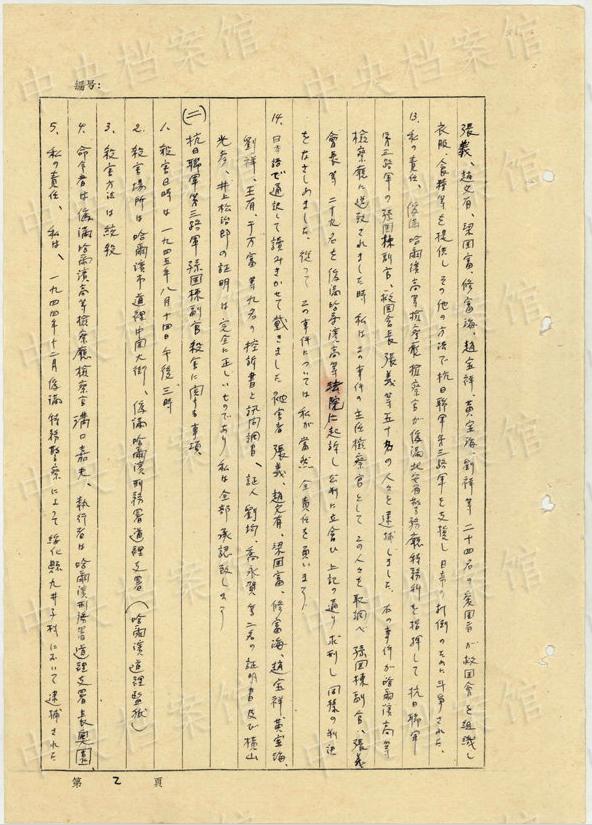 编号:
張義、趙文有、梁国富、修富海、趙宝祥、黄宝海、劉祥等 二十四名の愛国者が救国會を組織し
衣服、食糧等を提供し その他の方法で抗日聯軍第三路軍を支援し 日本の打倒のために斗争された。
13. 私の責任、偽滿哈爾濱高等檢察廳檢察官が偽滿北安省警務廳特務科を指揮して 抗日聯軍
第三路軍の張国棟副官、救国會長 張義等五十名の人々を逮捕しました。右の事件が哈爾濱高等
檢察廳に送致されました時 私はこの事件の主任檢察官として この人々を取調べ 張国棟副官、張義
會長等二十九名を偽滿哈爾濱高等法院に起訴し 公判に立會ひ 上記の通り求刑し 同様の判決
をなさしめました。従って この事件については私が當然 全責任を負います。
14. 日本語で通訳して讀みきかせて戴きました 被害者 張義、趙文有、梁国富、修富海、趙宝祥、黄宝海、
劉祥、王有、于万富 等九名の控訴書と訊問調書、証人 劉琦、高永賀 等二名の証明書及び横山
光彦、井上松治郎の証明は完全に正しいものであり 私は全部 承認致します。
(二) 抗日聯軍第三路軍 張国棟副官殺害に関する事項、
1. 殺害日時は 一九四五年八月十四日午後三時
2. 殺害場所は哈爾濱市道理中国大街、偽滿哈爾濱刑務署道理支署（哈爾濱道理監獄）
3. 殺害方法は絞殺
4. 命令者は偽滿哈爾濱高等檢察廳檢察官 溝口嘉夫、執行者は 哈爾濱刑務署道理支署長奥園、
5. 私の責任、私は、一九四四年十二月 偽滿特務警察によって 綏化縣九井子村において 逮捕された
第 2 頁
中央档案馆